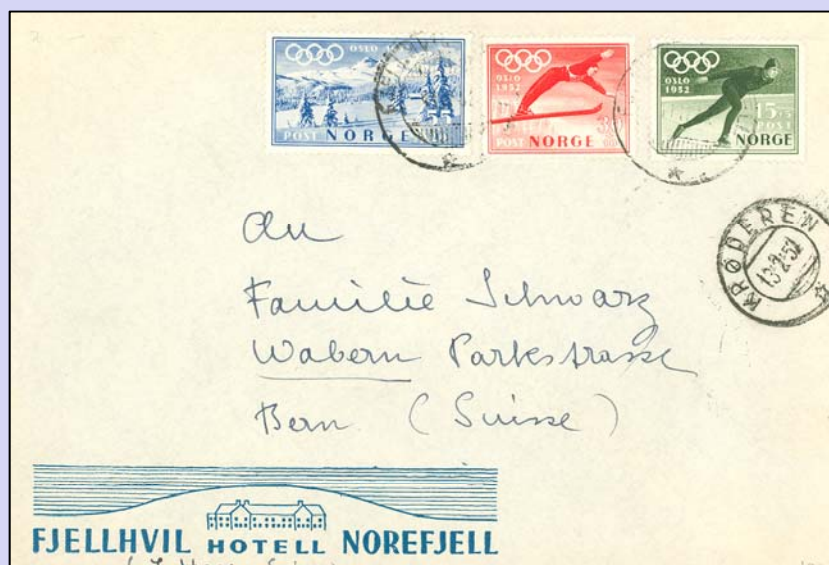 OSLO
POST NORGE
OSLO
1952
POST NORGE
OSLO
1952
15+5
POST
NORGE
KRØDEREN
13·2·52
An
Familie Schwarz
Wabern Parkstrasse
Bern (Suisse)
FJELLHVIL HOTELL NOREFJELL